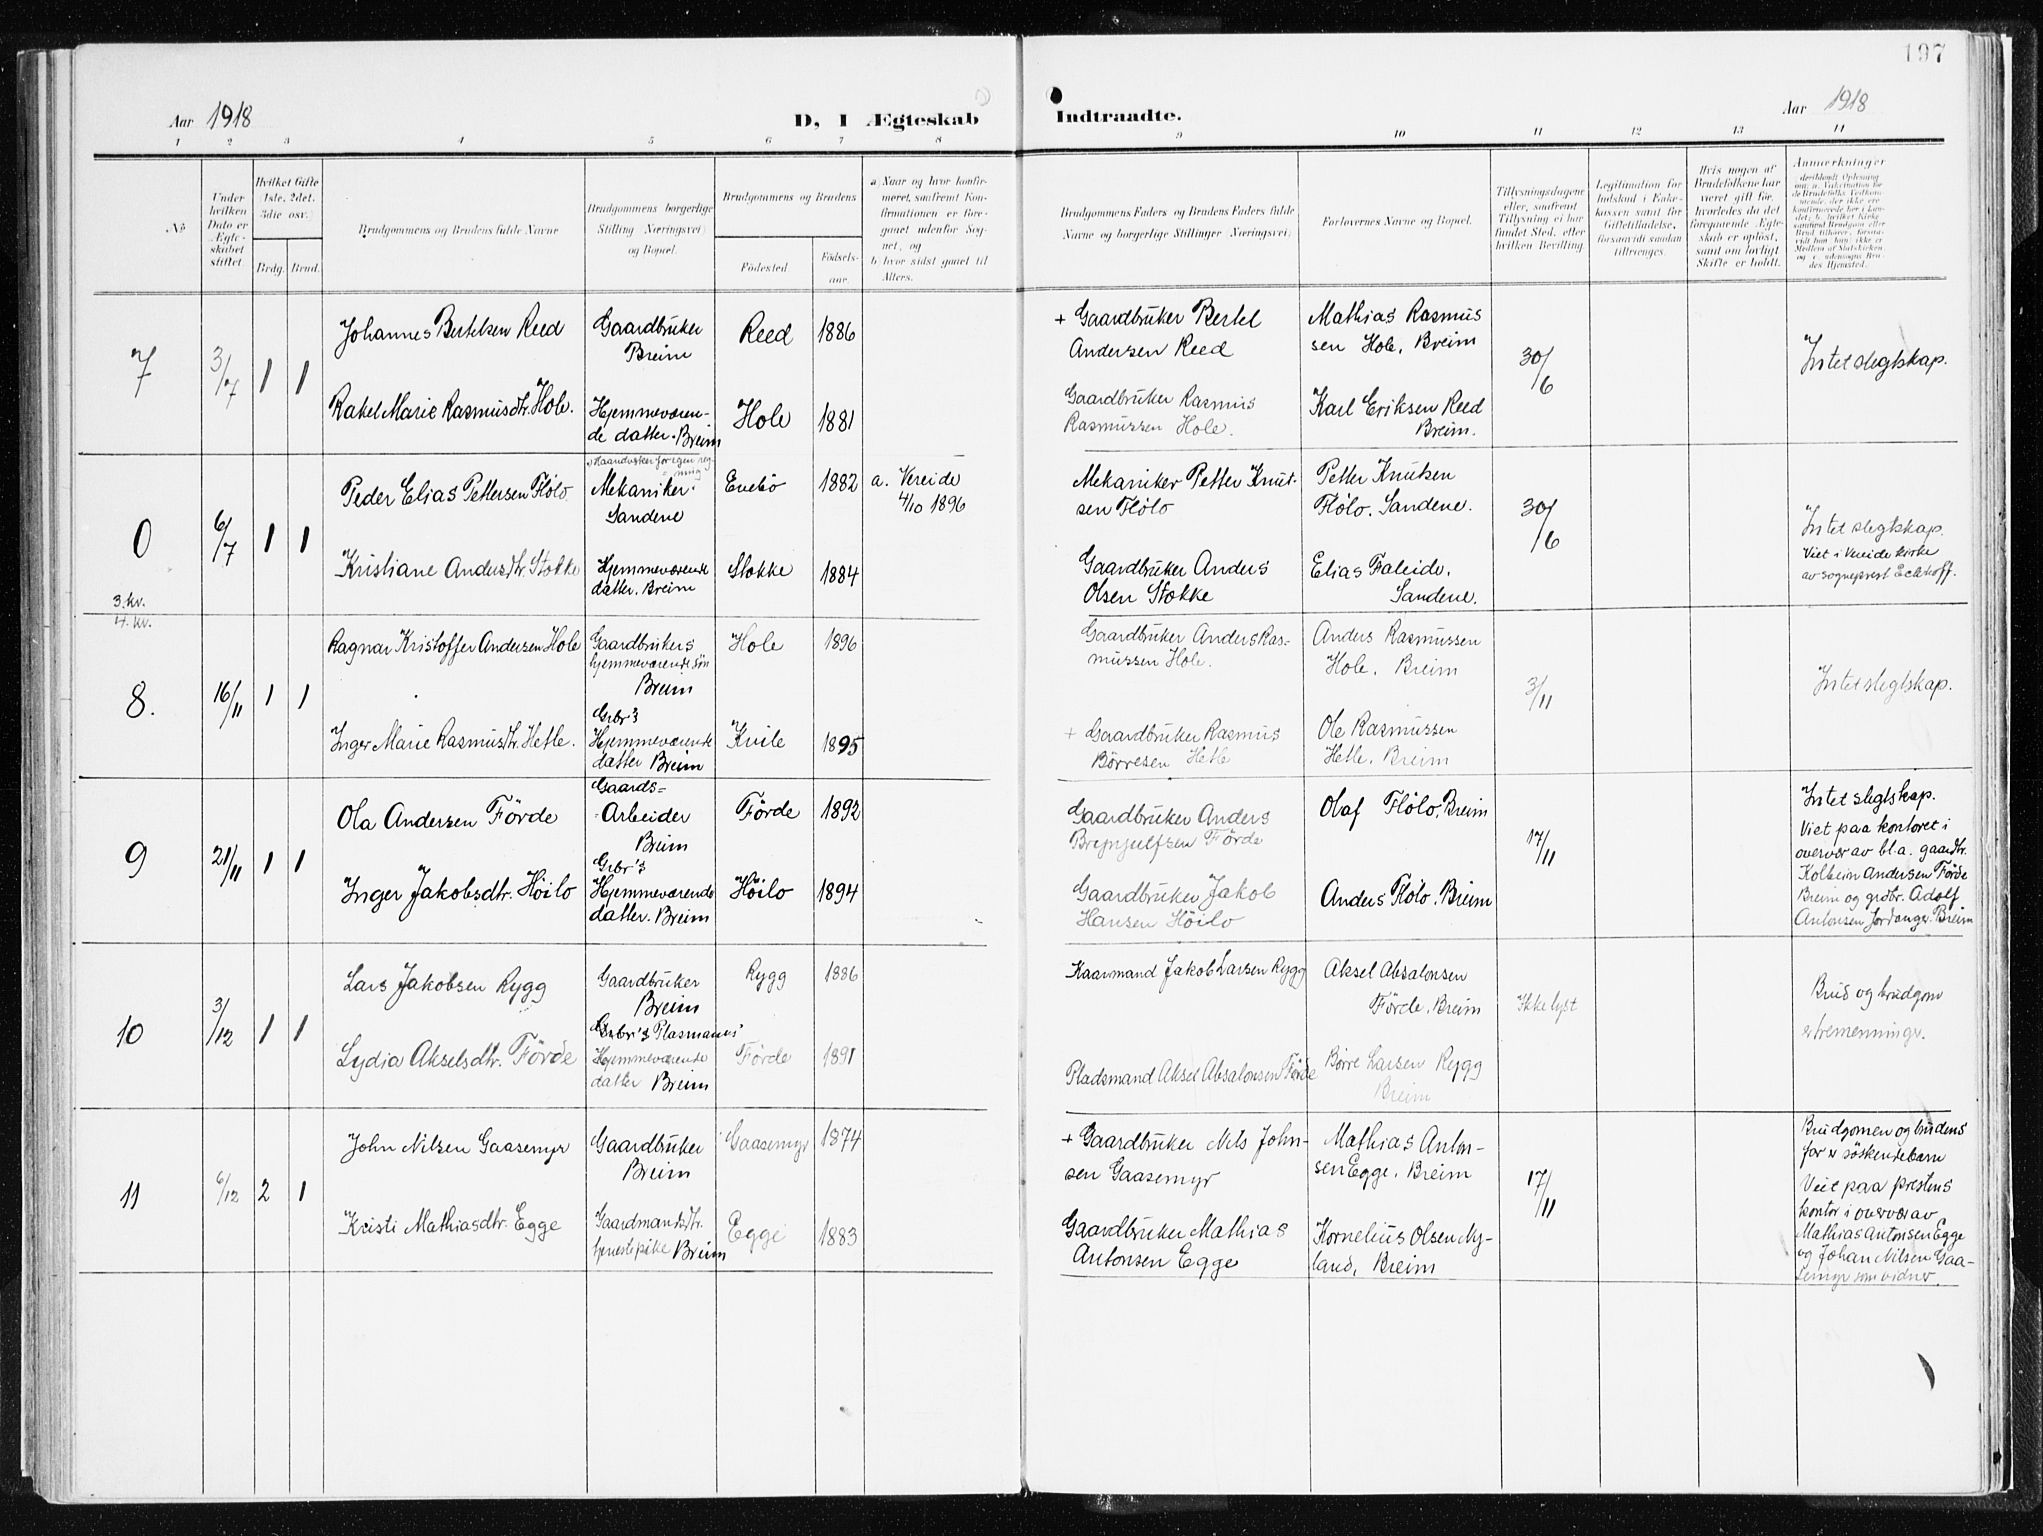 197
Aar 1918
D, I Ægteskab
Indtraadte.
Aar 1918
1 2 3 4 5 6 7 8 9 10 11 12 13 14
No
Under
hvilken
Dato er
Ægte-
skabet
stiftet.
Hvilket Gifte
(1ste, 2det,
3die osv.)
Brdg. Brud.
Brudgommens og Brudens fulde Navne
Brudgommens borgerlige
Stilling (Næringsvei)
og Bopæl.
Brudgommens og Brudens
Fødested
Fødsels-
aar.
a) Naar og hvor konfir-
meret, saafremt Kon-
firmationen er fore-
gaaet udenfor Sog-
net, og
b) hvor sidst gaaet til
Alters.
Brudgommens Faders og Brudens Faders fulde
Navne og borgerlige Stillinger (Næringsvei)
Forlovernes Navne og Bopæl.
Tillysningsdagene
eller, saafremt
Tillysning ei har
fundet Sted, efter
hvilken Bevilling.
Legitimation for
Indskud i Enke-
kassen samt for
Giftetilladelse,
forsaavidt saadan
tiltrænges.
Hvis nogen af
Brudefolkene har
været gift før,
hvorledes da det
foregaaende Ægte-
skab er opløst,
samt om lovligt
Skifte er holdt.
Anmærkninger
7
3/7
1 1
Johannes Bertelsen Reed
Gaardbruker
Breim
Reed
1886
+ Gaardbruker Bertel
Andersen Reed
Mathias Rasmus
sen Hole, Breim
30/6
Intet slegtskap.
Rakel Marie Rasmusdtr. Hole.
Hjemmeværen-
de datter. Breim
Hole
1881
Gaardbruker Rasmus
Rasmussen Hole.
Karl Eriksen Reed
Breim.
0
6/7
1 1
Peder Elias Pettersen Flölo
Mekaniker.
Sandene
Evebö
1882
a. Vereide
4/10 1896
Mekaniker Petter Knut-
sen Flölo
Petter Knutsen
Flölo. Sandene.
30/6
Intet slegtskap.
Viet i Vereide kirke
av sogneprest Eckhoff.
Kristiane Andersdtr. Stokke
Hjemmeværende
datter. Breim
Stokke
1884
Gaardbruker Anders
Olsen Stokke
Elias Faleide,
Sandene.
3. kv.
4. kv.
8.
16/11
1 1
Ragnar Kristoffer Andersen Hole
Gaardbrukers
hjemmeværende sön
Breim
Hole
1896
Gaardbruker Anders Ras-
mussen Hole.
Anders Rasmussen
Hole, Breim
3/11
Intet slegtskap.
Inger Marie Rasmusdtr. Hetle.
Grbr's
Hjemmeværende
datter Breim
Kvile
1895
+ Gaardbruker Rasmus
Börresen Hetle
Ole Rasmussen
Hetle, Breim
9
21/11
1 1
Ola Andersen Förde
Gaards-
Arbeider
Breim
Förde
1892
Gaardbruker Anders
Brynjulfsen Förde
Olaf Flölo, Breim
17/11
Intet slegtskap.
Viet paa kontoret i
overvær av bl.a. gaardbr.
Kolbein Andersen Förde
Breim og grdbr. Adolf
Antonsen Jordanger. Breim
Inger Jakobsdtr. Höilo
Grbr's
Hjemmeværende
datter. Breim
Höilo
1894
Gaardbruker Jakob
Hansen Höilo
Anders Flölo. Breim
10
3/12
1 1
Lars Jakobsen Rygg
Gaardbruker
Breim
Rygg
1886
Kaarmand Jakob Larsen Rygg
Aksel Absalonsen
Förde, Breim
Ikke lyst
Brud og brudgom
er tremenninger.
Lydia Akselsdtr. Förde
Plasmanns
Hjemmeværende
datter Breim
Förde
1891
Pladsmand Aksel Absalonsen Förde
Börre Larsen Rygg
Breim
11
6/12
2 1
John Nilsen Gaasemyr
Gaardbruker
Breim
Gaasemyr
1874
+ Gaardbruker Nils John-
sen Gaasemyr
Mathias Anton-
sen Egge, Breim
17/11
Brudgomen og brudens
far er söskendebarn
Viet paa prestens
kontor i overvær av
Mathias Antonsen Egge
og Johan Nilsen Gaa-
semyr som vidner.
Kristi Mathiasdtr. Egge
Gaardmandsdtr.
tjenestepike Breim
Egge
1883
Gaardbruker Mathias
Antonsen Egge
Kornelius Olsen My-
land, Breim